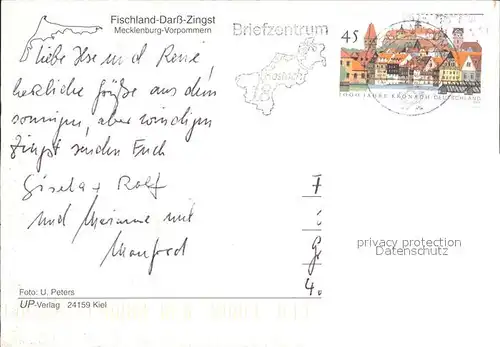 Fischland-Darß-Zingst
Mecklenburg-Vorpommern
Liebe Ilse und René,
herzliche Grüße aus dem
sonnigen, aber windigen
Zingst senden Euch
Gisela + Rolf
und Marianne mit
Manfred
Foto: U. Peters
UP-Verlag 24159 Kiel
Briefzentrum
Rostock
45
1000 JAHRE KRONACH DEUTSCHLAND
F
i
Gr
4.
privacy protection
Datenschutz